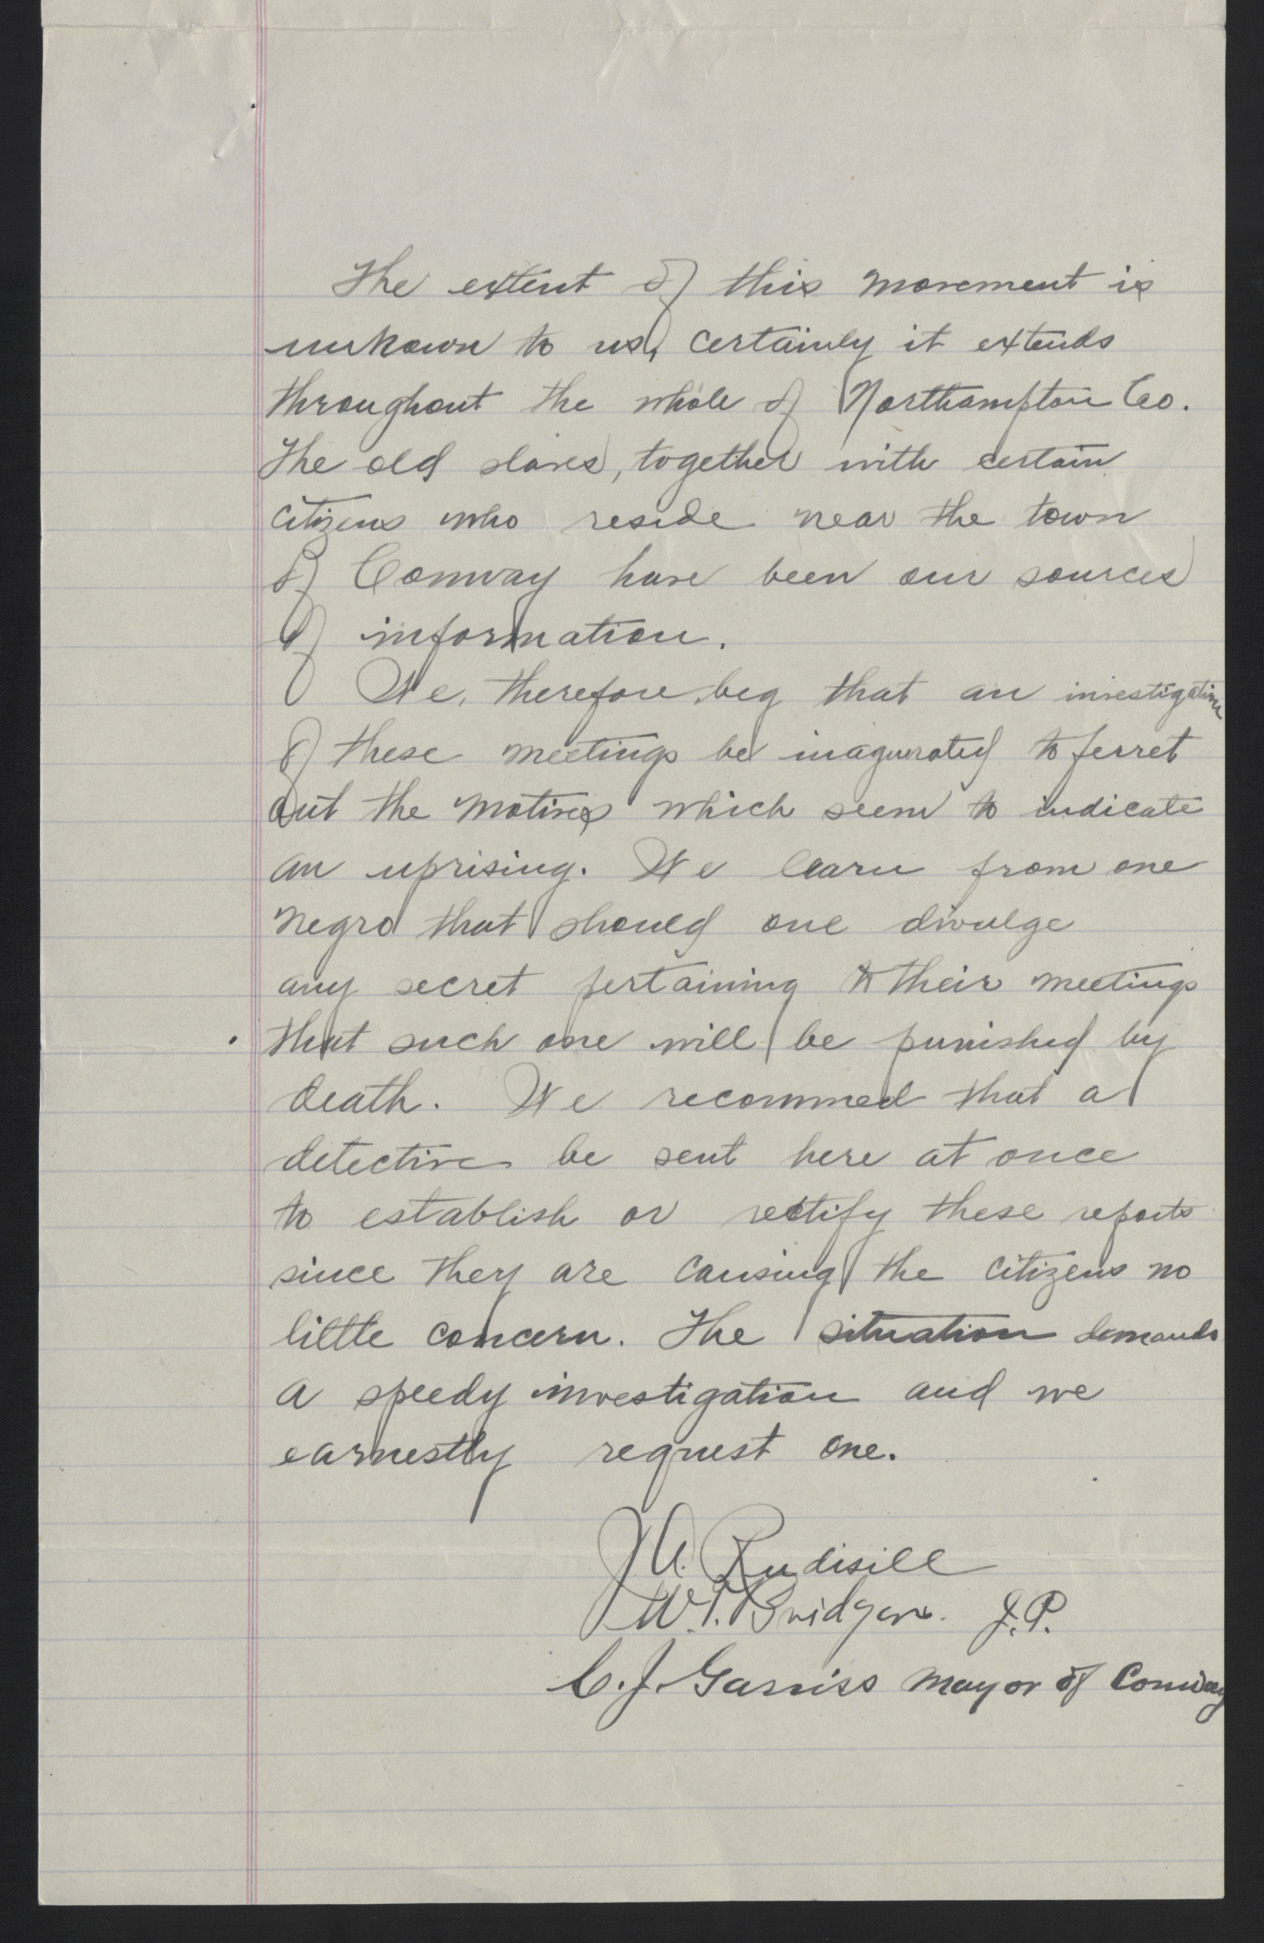 The extent of this movement is
unkown to us, certainly it extends
throughout the whole of Northampton Co.
The old slaves, together with certain
citizens who reside near the town
of Conway have been our sources
of information.
We, therefore, beg that an investigation
of these meetings be inagurated to ferret
out the motives which seem to indicate
an uprising. We learn from one
negro that should one divulge
any secret pertaining to their meetings
that such one will be punished by
death. We recommed that a
detective be sent here at once
to establish or rectify these reports
since they are causing the citizens no
little concern. The situation demands
a speedy investigation and we
earnestly request one.
J. A. Rudisill
W. T. Bridgers. J.P.
C. J. Garriss Mayor of Conway